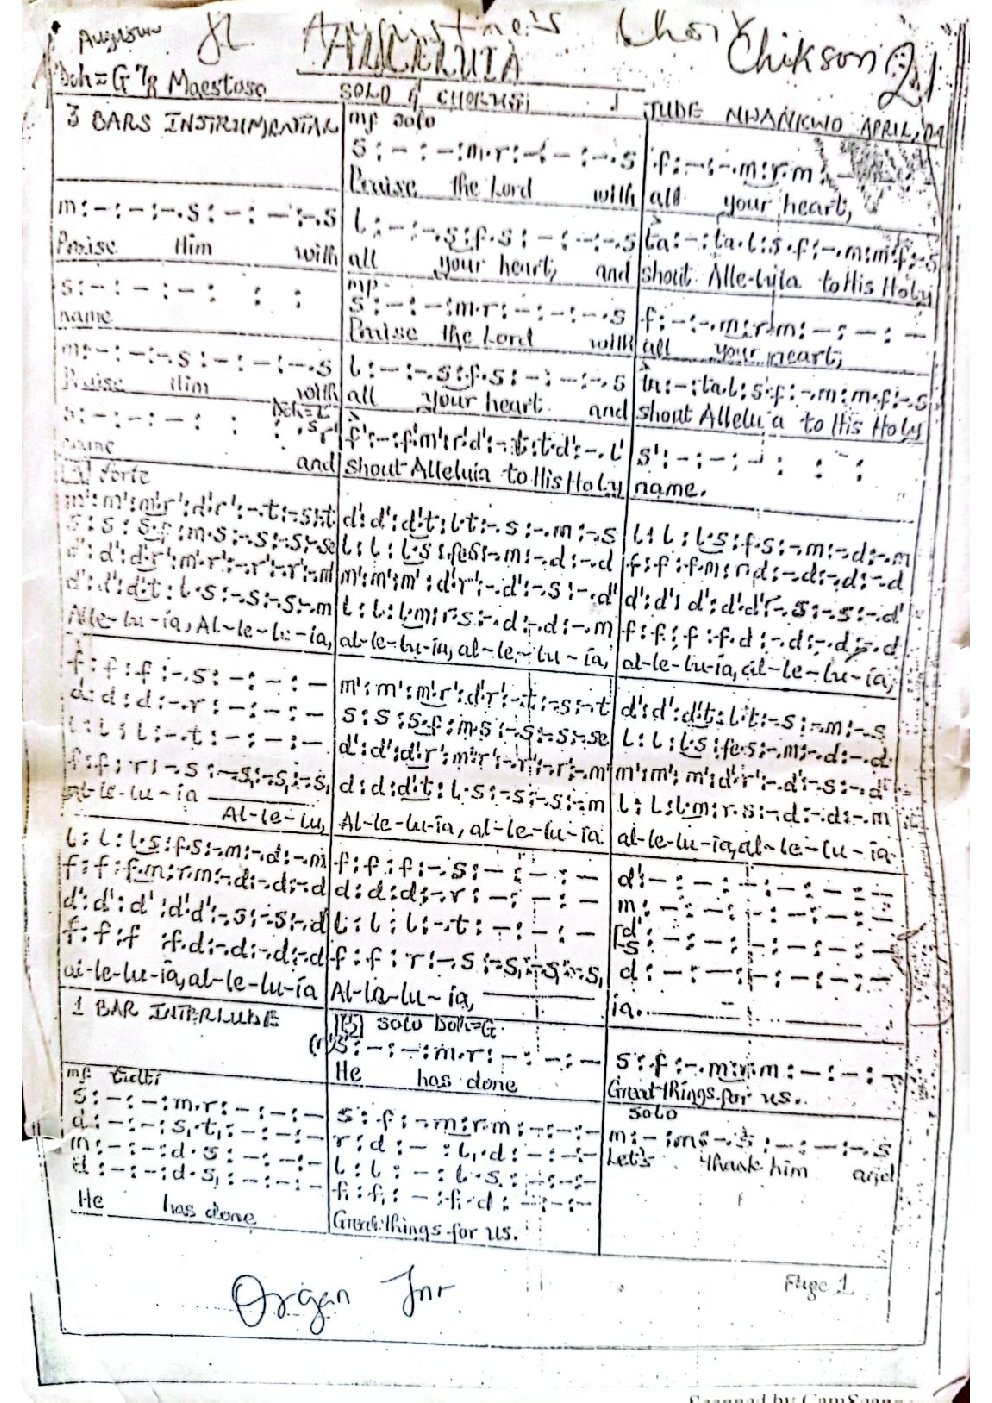 St Augustine's Choir
Augustine
Chikson
21
ALLELUIA
Doh = G 7/8 Maestoso
SOLO & CHORUS
JUDE NWANKWO APRIL, 09
3 BARS INSTRUMENTAL
mf solo
s : – : – : m . r : – : – : – . s
f : – : – . m : r . m : –
Praise the Lord with
all your heart,
m : – : – : – . s : – : – : – . s
l : – : – . s : f . s : – : – : – . s
ta : – : ta . l : s . f : – . m : m . f : – . s
Praise Him with
all your heart, and
shout Alle-luia to His Holy
s : – : – : – : : :
mp
s : – : – : m . r : – : – : – . s
f : – : – . m : r . m : – : – : –
name
Praise the Lord with
all your heart,
m : – : – : – . s : – : – : – . s
l : – : – . s : f . s : – : – : – . s
ta : – : ta . l : s . f : – . m : m . f : – . s
Praise Him with
all your heart and
shout Allelu a to His Holy
s : – : – : – : : :
f' : – : f' . m' : r' . d' : – . t : t . d' : – . l'
s' : – : – : – : : :
name and
shout Alleluia to His Holy
name.
forte
m' : m' : m' . r' : d' . r' : – . t : – . s : – . t
d' : d' : d' . t : l . t : – . s : – . m : – . s
l : l : l . s : f . s : – . m : – . d : – . m
s : s : s . f : m . s : – . s : – . s : – . se
l : l : l . s : fe . s : – . m : – . d : – . d
f : f : f . m : r . d : – . d : – . d : – . d
d' : d' : d' . r' : m' . r' : – . r' : – . r' : – . m'
m' : m' : m' : d' . r' : – . d' : – . s : – . d'
d' : d' : d' : d' . d' : – . s : – . s : – . d'
d' : d' : d' . t : l . s : – . s : – . s : – . m
l : l : l . m : r . s : – . d : – . d : – . m
f : f : f : f . d : – . d : – . d : – . d
Alle-lu-ia, Al-le-lu-ia,
al-le-lu-ia, al-le-lu-ia,
al-le-lu-ia, al-le-lu-ia,
f : f : f : – . s : – : – : –
m' : m' : m' . r' : d' . r' : – . t : – . s : – . t
d' : d' : d' . t : l . t : – . s : – . m : – . s
d : d : d : – . r : – : – : –
s : s : s . f : m . s : – . s : – . s : – . se
l : l : l . s : fe . s : – . m : – . d : – . d
l : l : l : – . t : – : – : –
d' : d' : d' . r' : m' . r' : – . r' : – . r' : – . m'
m' : m' : m' : d' . r' : – . d' : – . s : – . d'
f : f : r : – . s : – . s, : – . s, : – . s,
d : d : d . t : l . s : – . s : – . s : – . m
l : l : l . m : r . s : – . d : – . d : – . m
al-le-lu-ia
Al-le-lu,
Al-le-lu-ia, al-le-lu-ia.
al-le-lu-ia, al-le-lu-ia.
l : l : l . s : f . s : – . m : – . d : – . m
f : f : f : – . s : – : – : –
d' : – : – : – : – : – : –
f : f : f . m : r . m : – . d : – . d : – . d
d : d : d : – . r : – : – : –
m : – : – : – : – : – : –
d' : d' : d' : d' . d' : – . s : – . s : – . d
l : l : l : – . t : – : – : –
d'
s : – : – : – : – : – : –
f : f : f : f . d : – . d : – . d : – . d
f : f : r : – . s : – . s, : – . s, : – . s,
d : – : – : – : – : – : –
al-le-lu-ia, al-le-lu-ia
Al-la-lu-ia,
ia.
1 BAR INTERLUDE
SOLO Doh=G
s : – : – : m . r : – : – : –
s : f : – . m : r . m : – : – : –
He has done
Great things for us.
mf tutti
SOLO
s : – : – : m . r : – : – : –
s : f : – . m : r . m : – : – : –
m : – : m s – . s : – : – : – . s
d : – : – : s, . t, : – : – : –
r : d : – : l, . d : – : – : –
Let's thank him and
m : – : – : d . s : – : – : –
l : l : – : l . s : – : – : –
d : – : – : d . s, : – : – : –
f, : f, : – : f, . d : – : – : –
He has done
Great things for us.
Page 1
Organ Jnr
Scanned by CamScanner